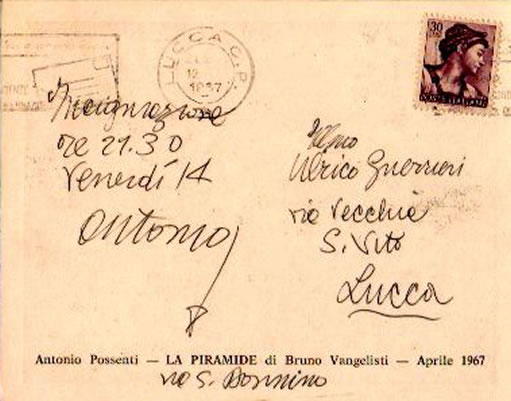 LUCCA C.P.
12
1967
30
POSTE ITALIANE
Inaugurazione
ore 21.30
Venerdí 14
Antonio
Ulrico Guerrieri
via Vecchia
S. Vito
Lucca
Antonio Possenti — LA PIRAMIDE di Bruno Vangelisti — Aprile 1967
via S. Donnino